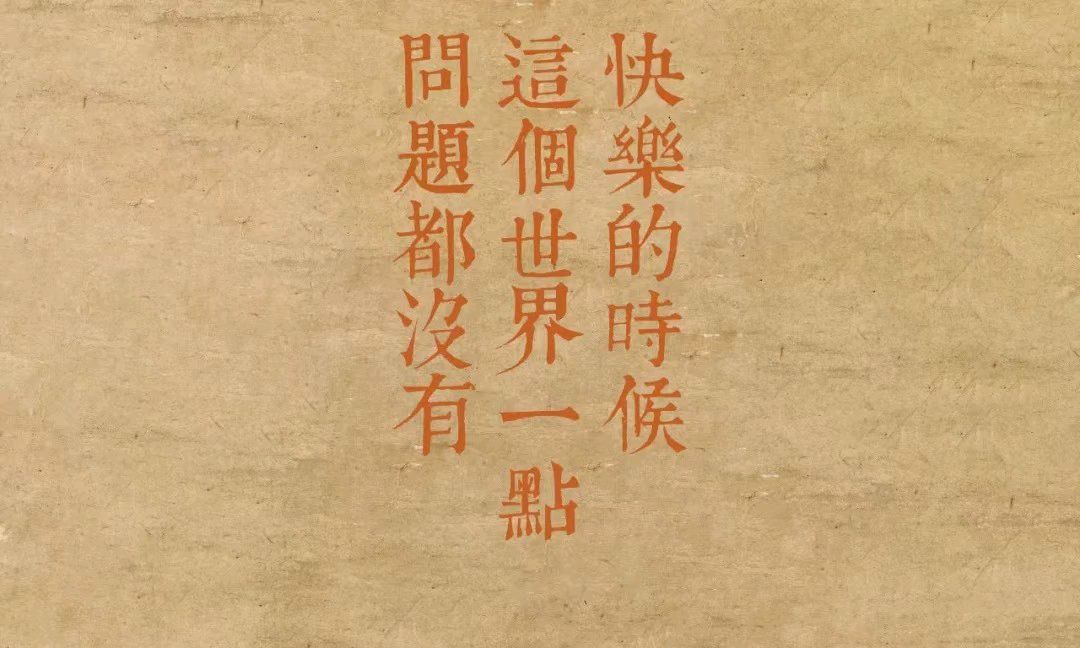 快樂的時候
這個世界一點
問題都沒有